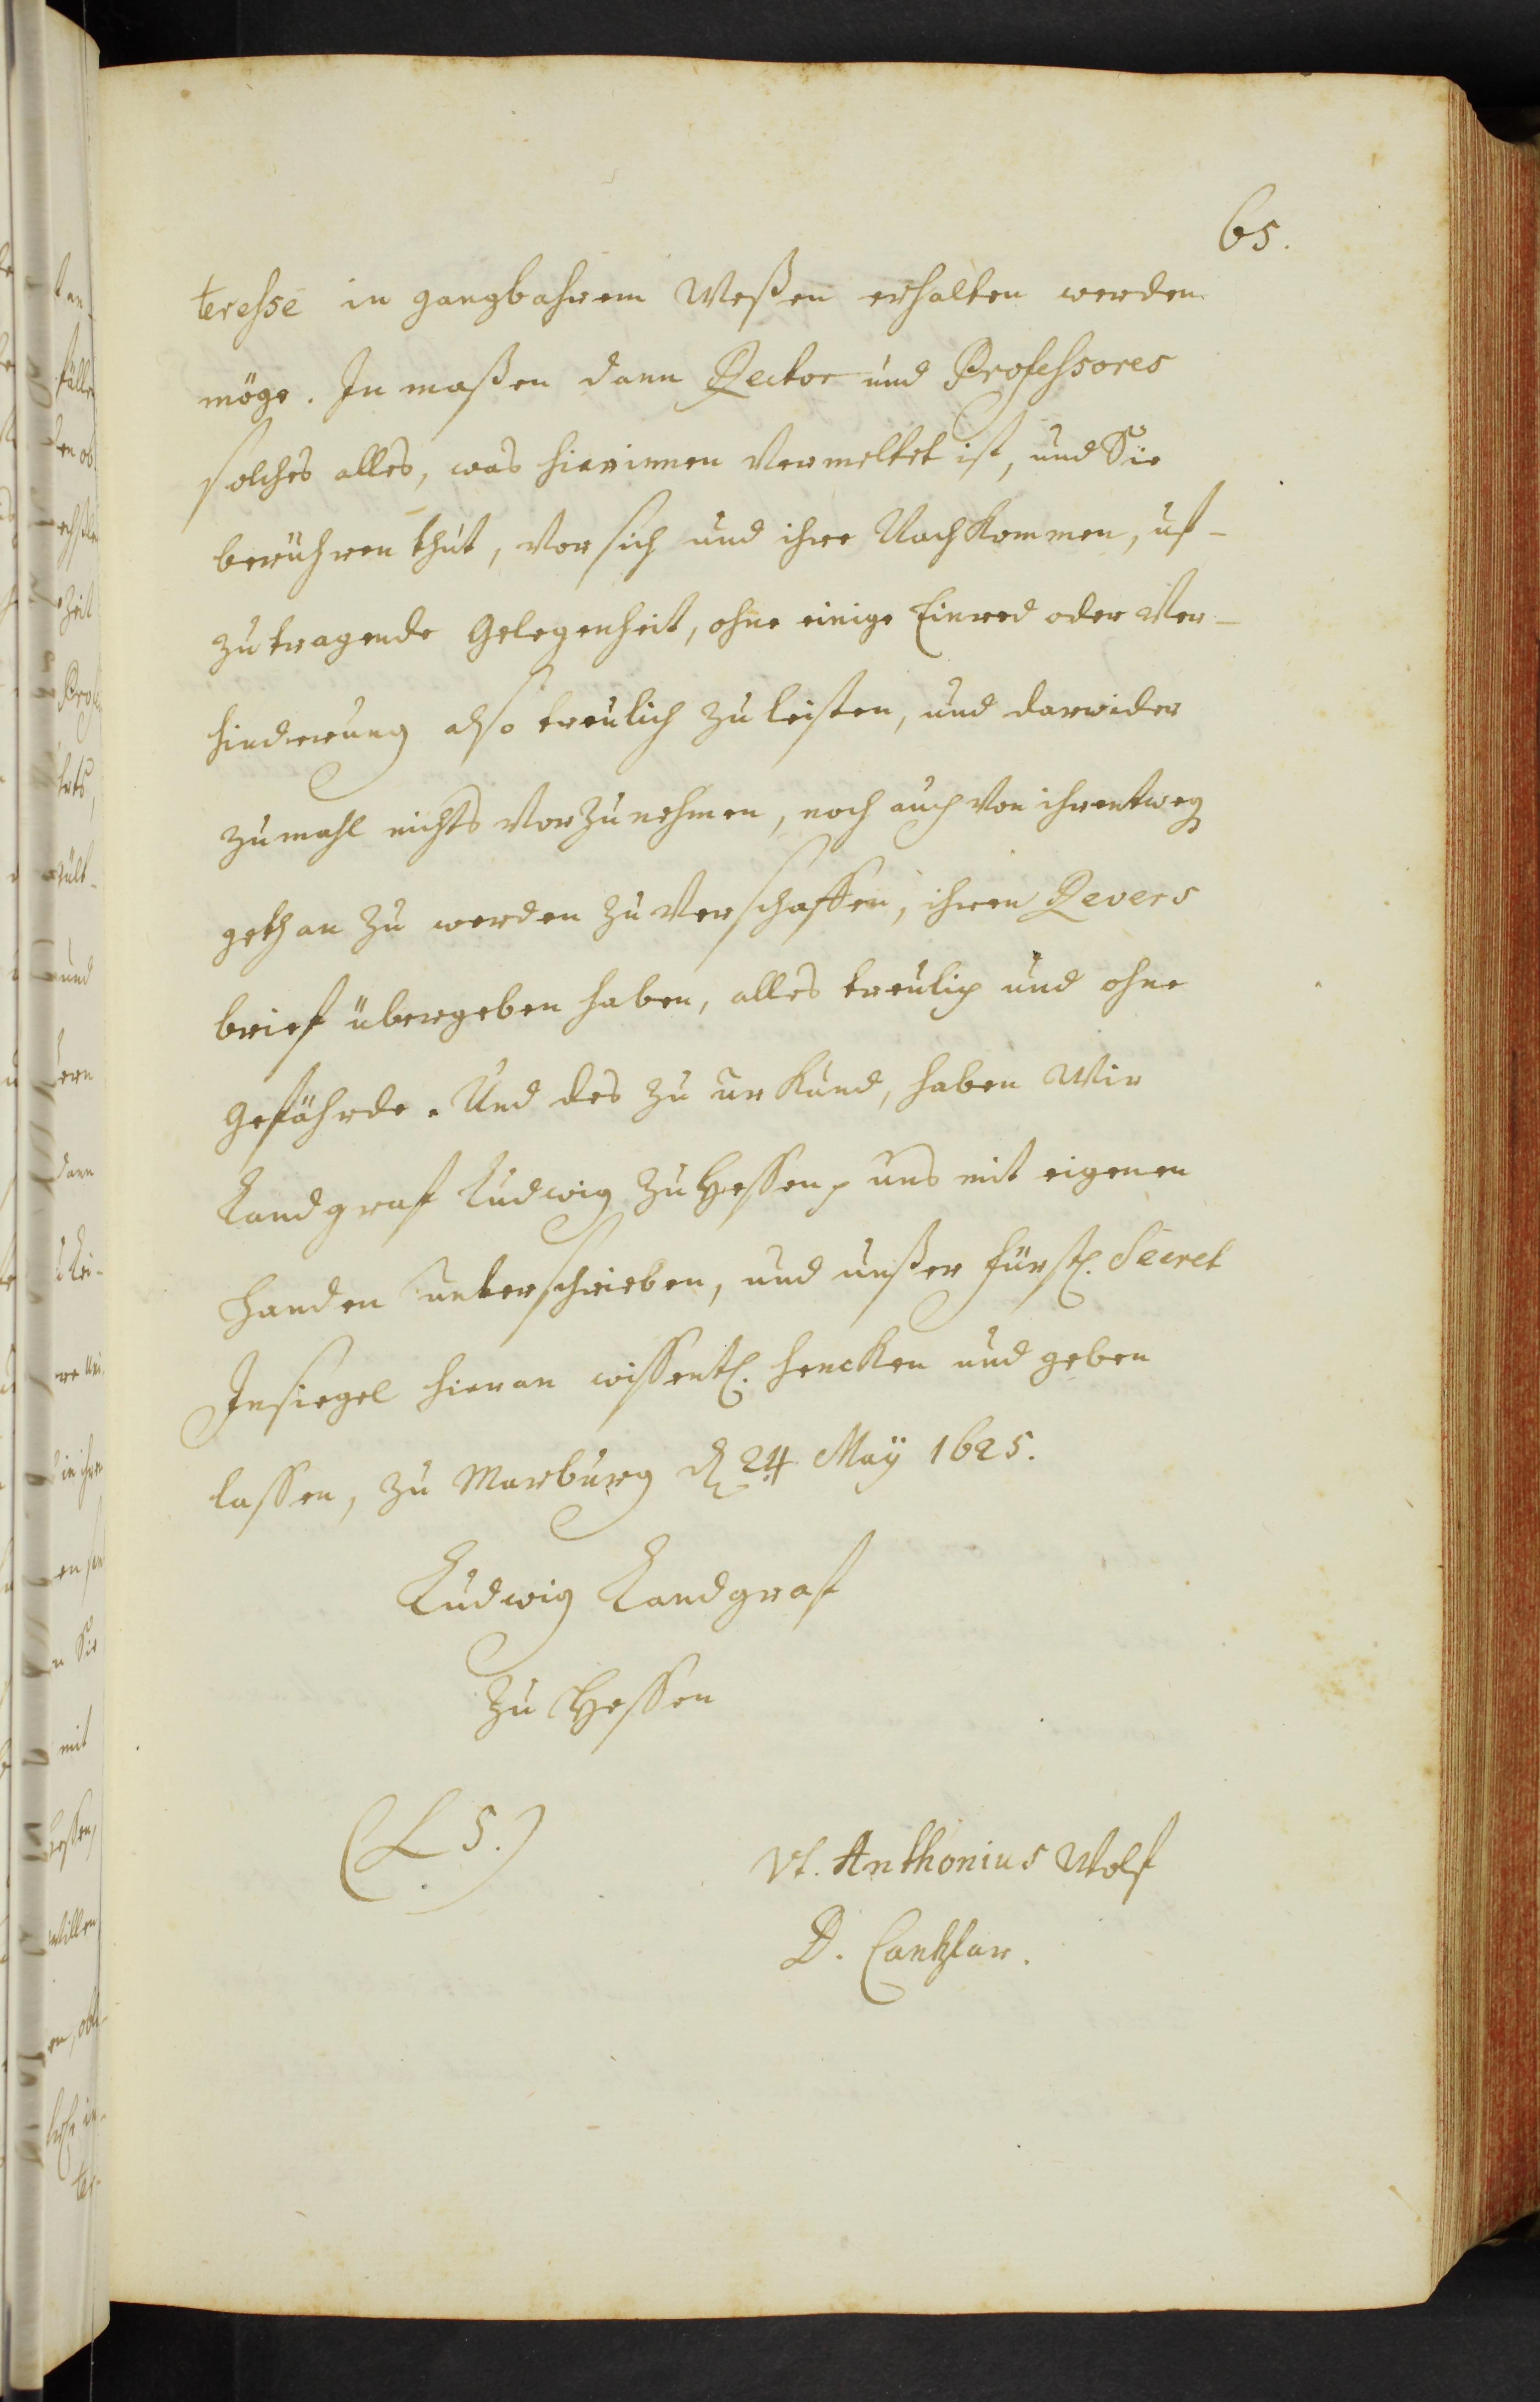 65.
teresse in gangbahrem Weßen erhalten werden
möge. In maßen dann Rector und Professores
solches alles, was hierinnen Vermeltet ist, und Sie
berühren thut, Vor sich und ihre Nachkommen, uf-
zutragende Gelegenheit, ohne einige Einred oder Ver-
hinderung also treulich zu leisten, und darwider
zumahl nichts Vorzunehmen, noch auch Von ihrentweg
gethan zu werden zu Verschaffen, ihren Revers
brief übergeben haben, alles treulich und ohne
Gefährde. Und des zu urkund, haben Wir
Landgraf Ludwig zu Hessen, uns mit eigenen
handen unterschrieben, und unßer fürstl. Secret
Insiegel hieran wissentl. hencken und geben
lassen, zu Marburg d 24 Maÿ 1625.
Ludwig Landgraf
zu Hessen
(L S.)
Vt. Anthonius Wolf
D. Cantzlar.